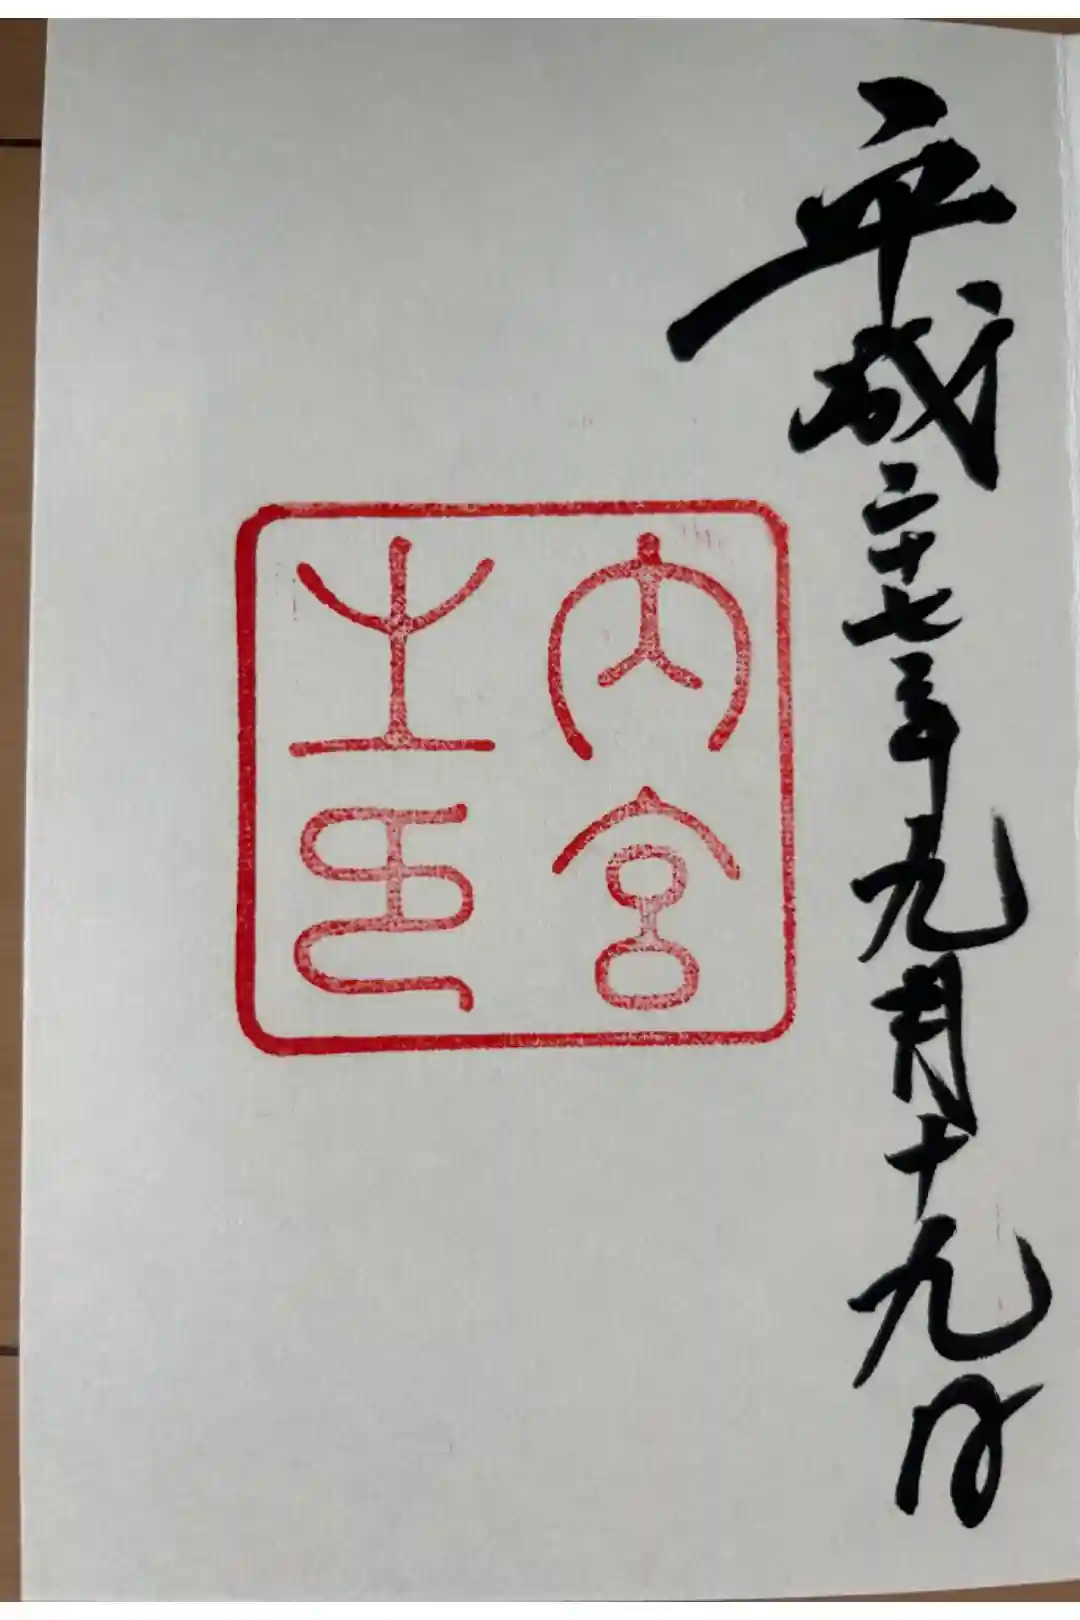 平成二十七年九月十九日
内宮
之印